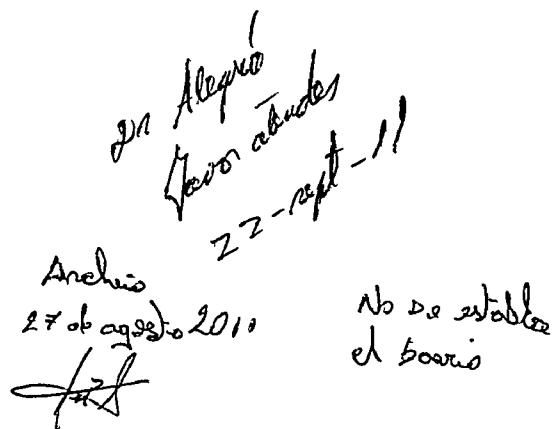 Dr Alegría
Favor atender
22-sept-11
Archivo
27 de agosto 2011
No se establece
el barrio